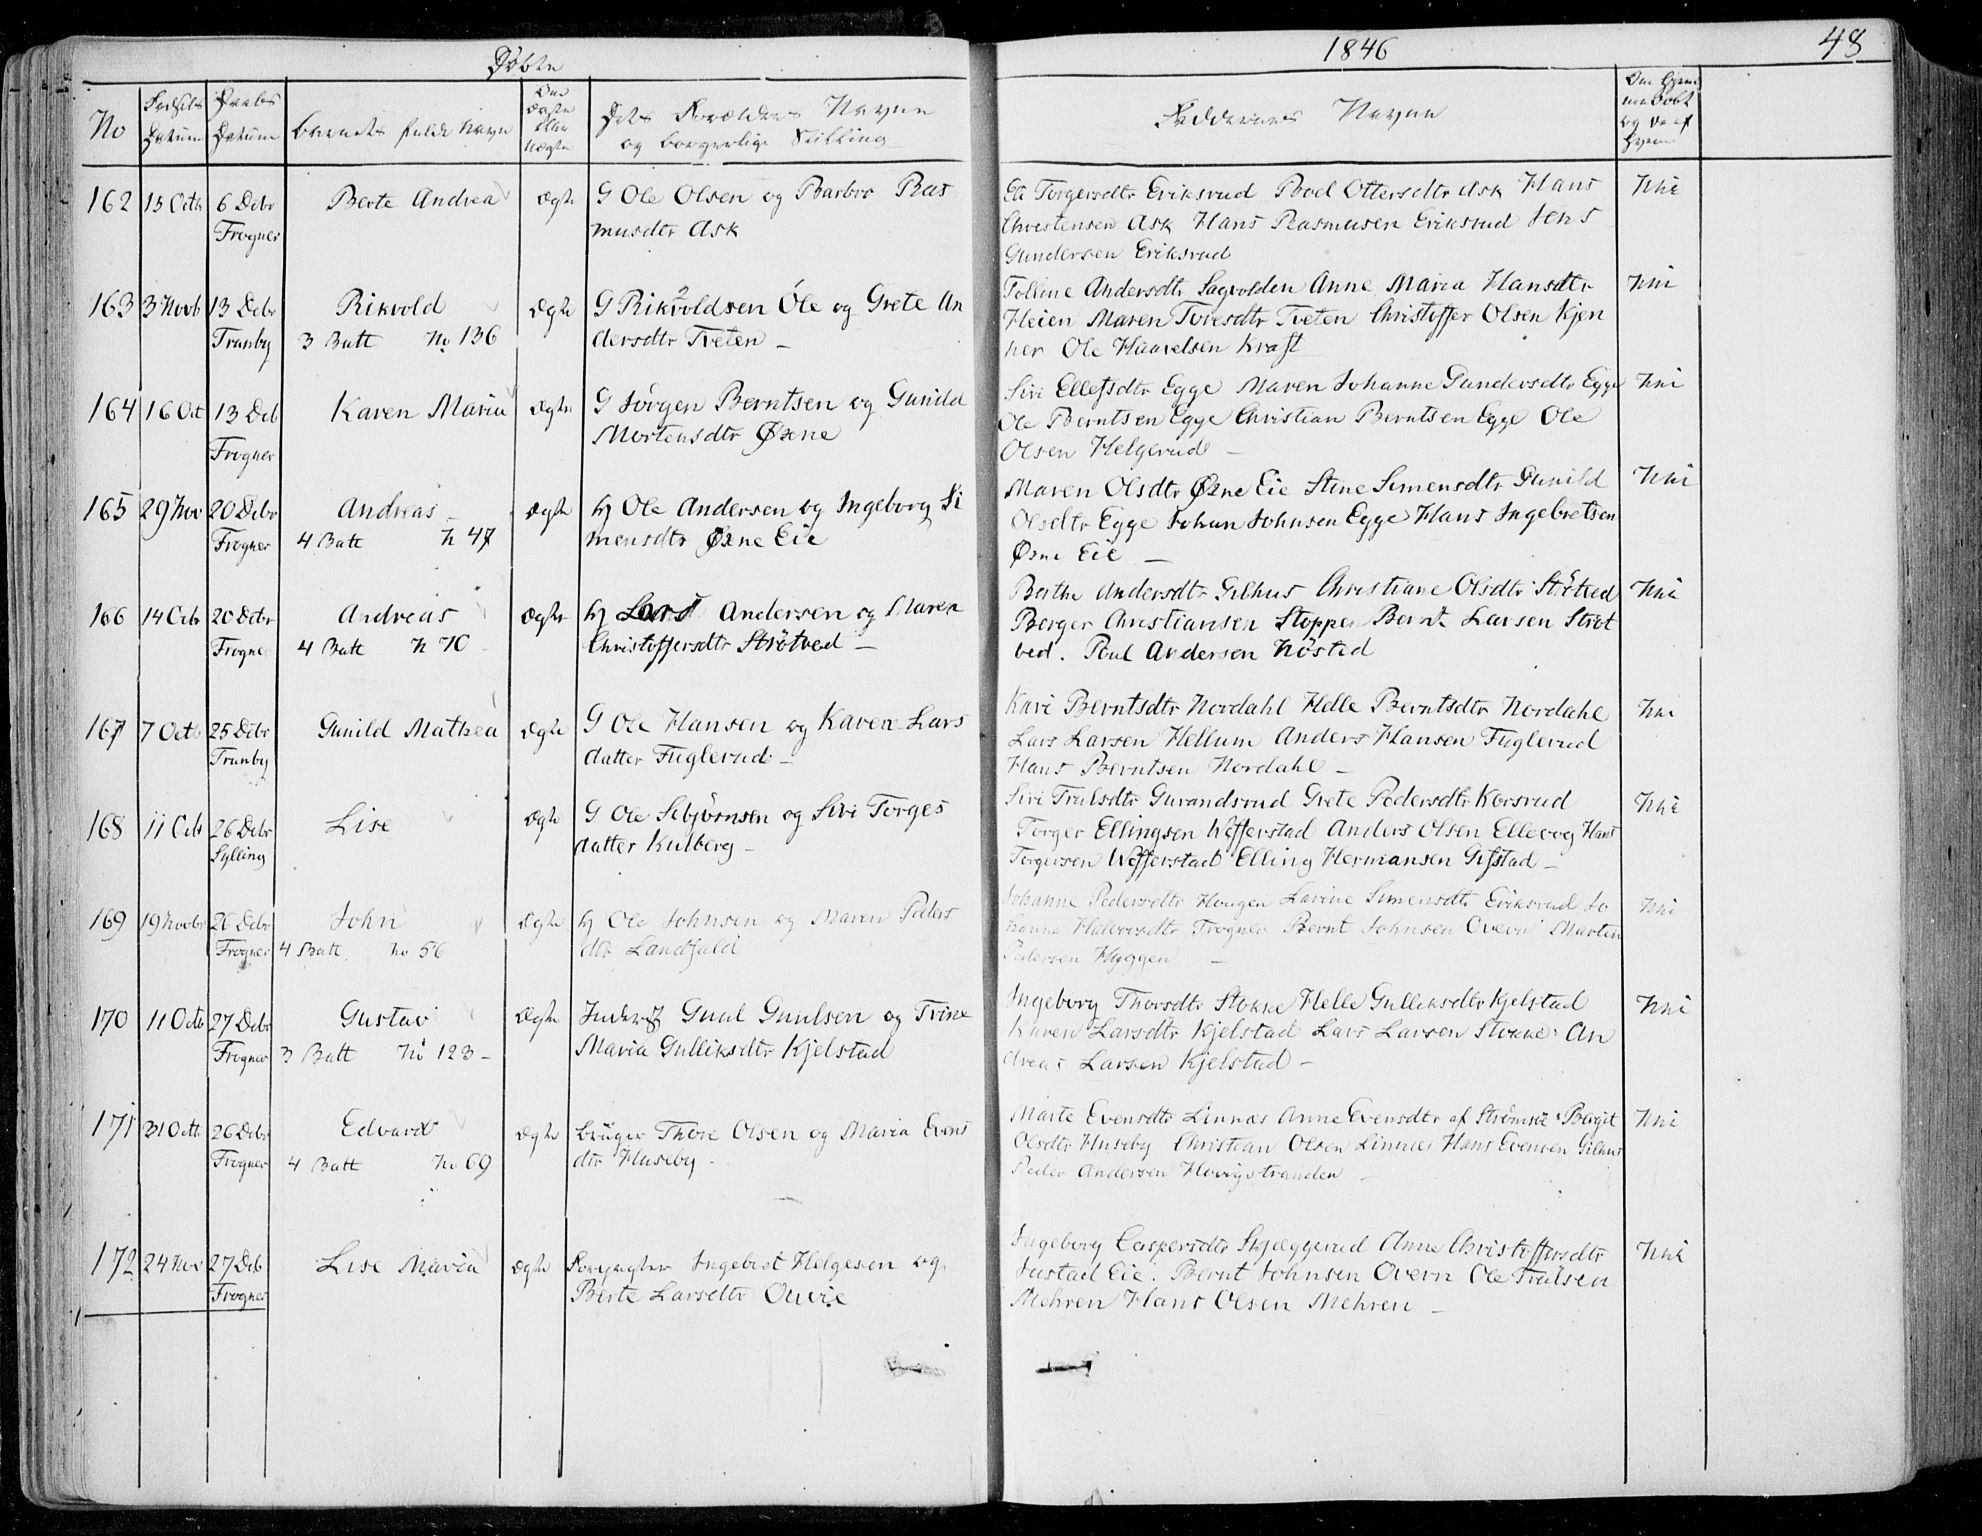 Døbte
1846
48
No
Fødsels Datum
Daabs Datum
Barnets fulde Navn
Om Ægte eller Uægte
Dets Forældres Navne
og borgerlige Stilling
Faddernes Navne
162 15 Octb 6 Debr Berte Andrea ægte G Ole Olsen og Barbro Ras
Frogner musdtr Ask
Torgersdtr Eriksrud Boel Ottersdtr Ask Hans Nei
Christensen Ask Hans Rasmusen Eriksrud Jens
Gundersen Eriksrud
163 3 Novb 13 Debr Rikvold ægte G Rikvoldsen Ole og Grete An
Tranby 3 Batt No 136 dersdtr Tveten
Tolline Andersdtr Sagvolden Anne Maria Hansdtr Nei
Heien Maren Toresdtr Tveten Christoffer Olsen Kjen
ner Ole Haavelsen Kraft
164 16 Oct 13 Deb Karen Maria ægte G Jörgen Berntsen og Gunild
Frogner Mortensdtr Øxne
Siri Ellefsdtr Egge Maren Johanne Gundersdtr Egge Nei
Ole Berntsen Egge Christian Berntsen Egge Ole
Olsen Helgerud
165 29 Nov 20 Debr Andreas ægte Hj Ole Andersen og Ingeborg Si
Frogner 4 Batt N 47 mensdtr Øxne Eie
Maren Olsdtr Øxne Eie Stine Simensdtr Gunild Nei
Olsdtr Egge Johan Johnsen Egge Hans Ingebretsen
Øxne Eie
166 14 Octbr 20 Debr Andreas ægte Hj Lars Andersen og Maren
Frogner 4 Batt N 70 Christoffersdtr Strøtved
Berthe Andersdtr Gilhus Christiane Olsdtr Strötved Nei
Berger Christiansen Stoppen Bernt Larsen Ströt
ved. Poul Andersen Nösted
167 7 Octb 25 Debr Gunild Mathea ægte G Ole Hansen og Karen Lars
Tranby datter Fuglerud
Kari Berntsdtr Nordahl Helle Berntsdtr Nordahl Nei
Lars Larsen Hellum Anders Hansen Fuglerud
Hans Berntsen Nordahl
168 11 Octb 26 Debr Lise ægte G Ole Sebjörnsen og Siri Torges
Sylling datter Kulberg
Siri Trulsdtr Gurandsrud Grete Pedersdtr Korsrud Nei
Torger Ellingsen Wefferstad Anders Olsen Ellevog Hans
Torgersen Wefferstad Elling Hermansen Gifstad
169 19 Novbr 26 Debr John ægte Hj Ole Johnsen og Maren Peders
Frogner 4 Batt No 56 dtr Landfald
Johanne Pedersdtr Haugen Lavine Simensdtr Eriksrud Jo Nei
hanne Halvorsdtr Frogner Bernt Johnsen Overn Morten
Pedersen Hyggen
170 11 Octb 27 Debr Gustav ægte Inderst Guul Guulsen og Trine
Frogner 3 Batt No 123 Maria Gulliksdtr Kjelstad
Ingeborg Thorsdtr Stokke Helle Gulliksdtr Kjelstad Nei
Karen Larsdtr Kjelstad Lars Larsen Stokke An
dreas Larsen Kjelstad
171 31 Octb 26 Debr Edvard ægte bruger Thore Olsen og Maria Evens
Frogner 4 Batt No 69 dtr Huseby
Marte Evensdtr Linnæs Anne Evensdtr af Strömsöe Bergit Nei
Olsdtr Huseby Christian Olsen Linnæs Hans Evensen Gilhus
Peder Andersen Hovigstranden
172 24 Nov 27 Deb Lise Maria ægte Forpagter Ingebret Helgesen og
Frogner Berte Larsdtr Ouvie
Ingeborg Caspersdtr Skjæggerud Anne Christoffersdtr Nei
Justad Eie. Bernt Johnsen Overn Ole Trulsen
Mehren Hans Olsen Mehren